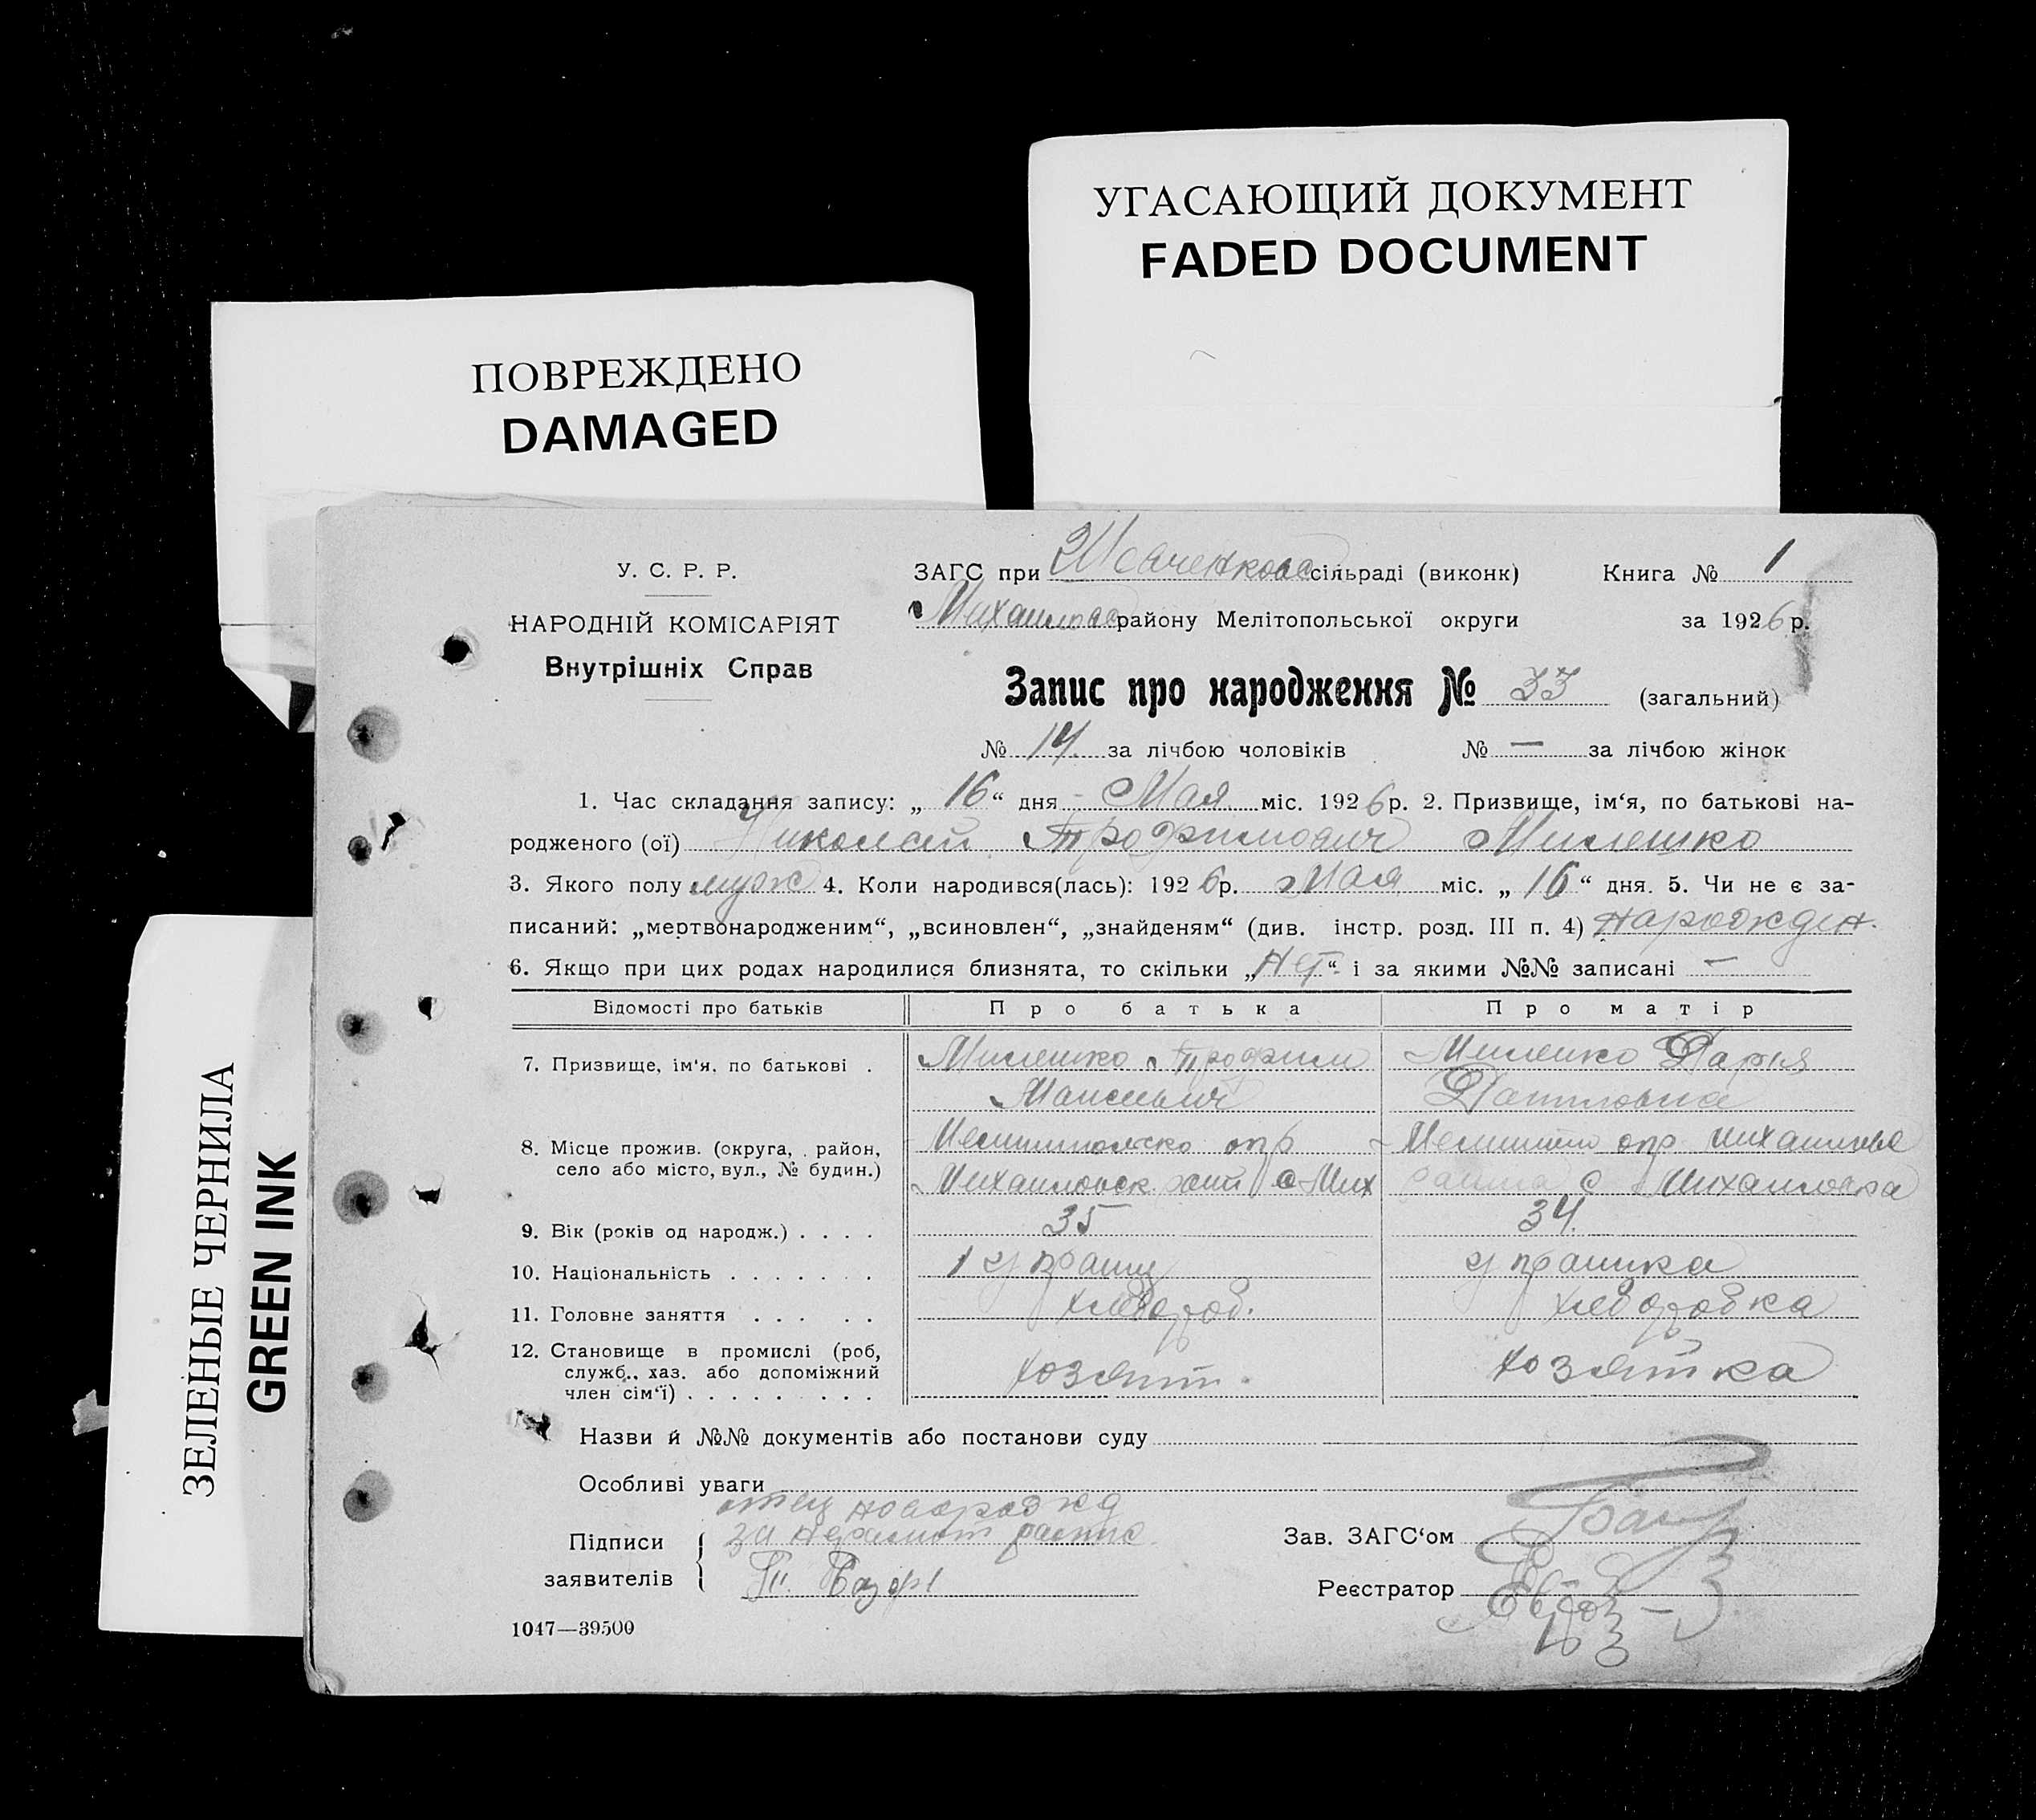 УГАСАЮЩИЙ ДОКУМЕНТ
FADED DOCUMENT
ПОВРЕЖДЕНО
DAMAGED
ЗЕЛЕНЫЕ ЧЕРНИЛА
GREEN INK
У. С. Р. Р.
НАРОДНІЙ КОМІСАРІЯТ
Внутрішніх Справ
ЗАГС при Шевченков сільраді (виконк) Книга № 1
Михайлов району Мелітопольської округи за 1926 р.
Запис про народження № 33 (загальний)
№ 14 за лічбою чоловіків № — за лічбою жінок
1. Час складання запису: „ 16 “ дня Мая міс. 1926 р. 2. Призвище, ім‘я, по батькові на-
родженого (ої) Николай Трофимович Милешко
3. Якого полу муж 4. Коли народився(лась): 1926 р. Мая міс. „ 16 “ дня. 5. Чи не є за-
писаний: „мертвонародженим“, „всиновлен“, „знайденям“ (див. інстр. розд. III п. 4) народжен.
6. Якщо при цих родах народилися близнята, то скільки „Нет“ і за якими №№ записані —
Відомості про батьків Про батька Про матір
7. Призвище, ім‘я, по батькові . Милешко Трофим Милешко Дарья
8. Місце прожив. (округа, район, село або місто, вул., № будин.)
Михайловск с Мих с Михайловка
9. Вік (років од народж.) . . . . 35 34.
10. Національність . . . . . . . украинка
11. Головне заняття . . . . . хлебороб. хлеборобка
12. Становище в промислі (роб, служб., хаз. або допоміжний член сім‘ї) . . . . . . . .
Назви й №№ документів або постанови суду
Особливі уваги
отец
за неграмот
Підписи заявителів
Зав. ЗАГС‘ом
Реєстратор
1047—39500